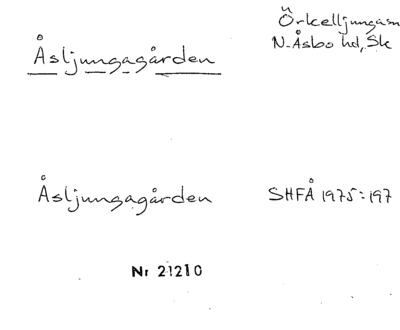 Åsljungagården
Örkelljungasn
N-Åsbo hd, Sk
Åsljungagården
SHFÅ 1975:197
Nr 21210